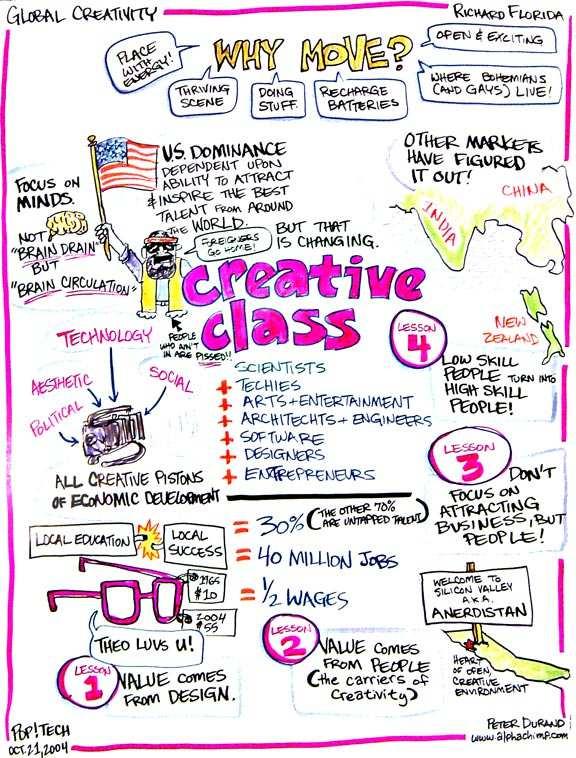 GLOBAL CREATIVITY
RICHARD FLORIDA
WHY MOVE?
PLACE
WITH
ENERGY!
THRIVING
SCENE
DOING
STUFF.
RECHARGE
BATTERIES
OPEN & EXCITING
WHERE BOHEMIANS
(AND GAYS) LIVE!
FOCUS ON
MINDS.
NOT
"BRAIN DRAIN"
BUT
"BRAIN CIRCULATION"
U.S. DOMINANCE
DEPENDENT UPON
ABILITY TO ATTRACT
& INSPIRE THE BEST
TALENT FROM AROUND
THE WORLD.
FOREIGNERS
GO HOME!
BUT THAT
IS CHANGING.
PEOPLE
WHO AIN'T
IN ARE PISSED!!
OTHER MARKETS
HAVE FIGURED
IT OUT!
CHINA
INDIA
NEW
ZEALAND
creative
class
TECHNOLOGY
AESTHETIC
SOCIAL
POLITICAL
ALL CREATIVE PISTONS
OF ECONOMIC DEVELOPMENT
SCIENTISTS
+ TECHIES
+ ARTS + ENTERTAINMENT
+ ARCHITECHTS + ENGINEERS
+ SOFTWARE
+ DESIGNERS
+ ENTREPRENEURS
= 30% (THE OTHER 70%
ARE UNTAPPED TALENT)
= 40 MILLION JOBS
= 1/2 WAGES
LESSON
4
LOW SKILL
PEOPLE TURN INTO
HIGH SKILL
PEOPLE!
LESSON
3
DON'T
FOCUS ON
ATTRACTING
BUSINESS, BUT
PEOPLE!
LOCAL EDUCATION
LOCAL
SUCCESS
$10
2004
$55
THEO LUVS U!
LESSON
1
VALUE COMES
FROM DESIGN.
LESSON
2
VALUE COMES
FROM PEOPLE
(the carriers of
Creativity)
WELCOME TO
SILICON VALLEY
A.K.A.
ANERDISTAN
HEART
OF OPEN,
CREATIVE
ENVIRONMENT
POP!TECH
OCT.21,2004
PETER DURAND
www.alphachimp.com